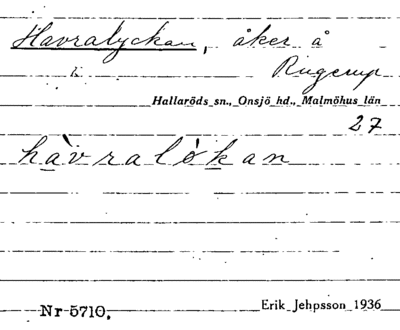 Havralyckan, åker å
Ringerup
Hallaröds sn., Onsjö hd., Malmöhus län
27
hàvralókan
Nr 5710.
Erik Jehpsson 1936